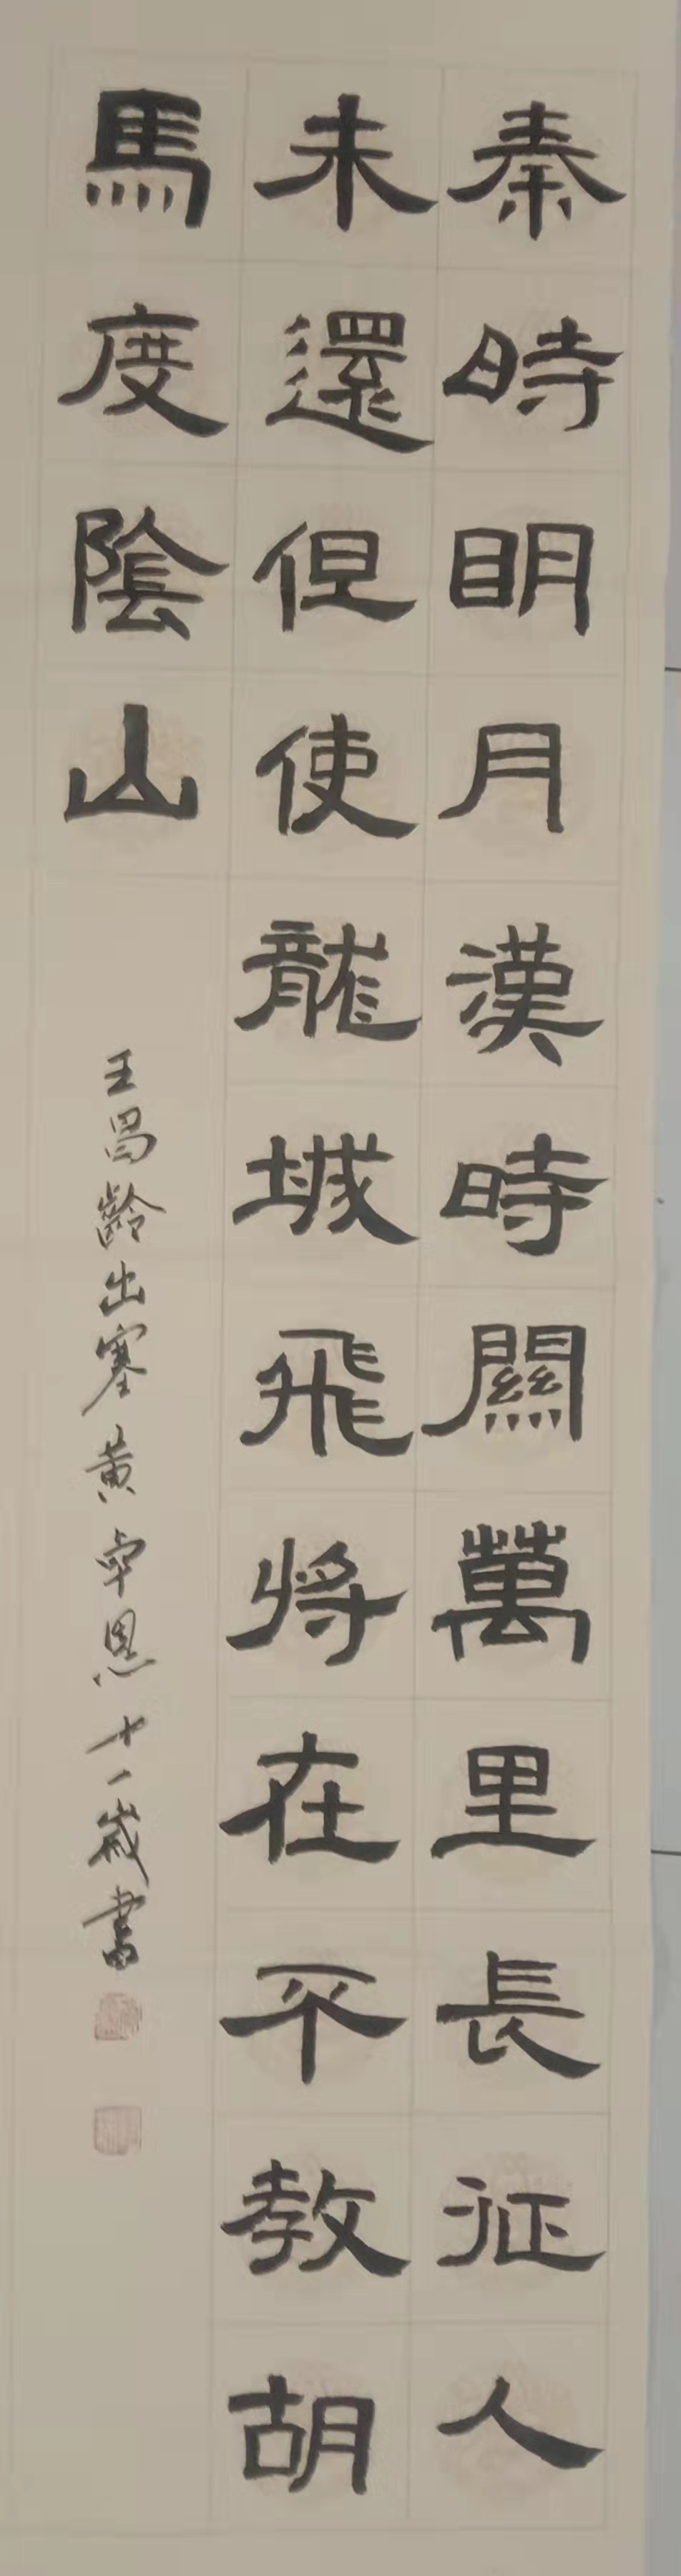 秦時明月漢時關萬里長征人
未還但使龍城飛將在不教胡
馬度陰山
王昌齡出塞黃卓恩十一歲書